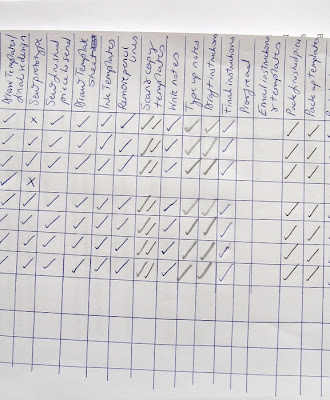 Draw Template/
design
Sew prototype
Sew finished
piece to send
Draw Template
sheet
Ink Templates
Remove pencil
lines
Scan & copy
templates
Write notes
Type up notes
Draft instructions
Final instructions
Proof read
Email instructions
& templates
Pack finished piece
Pack up Templates
✓ x ✓ ✓ ✓ ✓ ✓✓ ✓ ✓ ✓ ✓ ✓ ✓
✓ ✓ ✓ ✓ ✓ ✓ ✓✓ ✓ ✓ ✓ ✓ ✓ ✓
✓ ✓ ✓ ✓ ✓ ✓ ✓✓ ✓ ✓ ✓ ✓ ✓ ✓
✓ x
✓ ✓ ✓ ✓ ✓ ✓ ✓✓ ✓ ✓ ✓ ✓ ✓ ✓
✓ ✓ ✓ ✓ ✓ ✓ ✓✓ ✓ ✓ ✓ ✓ ✓ ✓
✓ ✓ ✓ ✓ ✓ ✓ ✓✓ ✓ ✓ ✓ ✓ ✓ ✓
✓ ✓ ✓ ✓ ✓ ✓ ✓✓ ✓ ✓ ✓ ✓ ✓ ✓